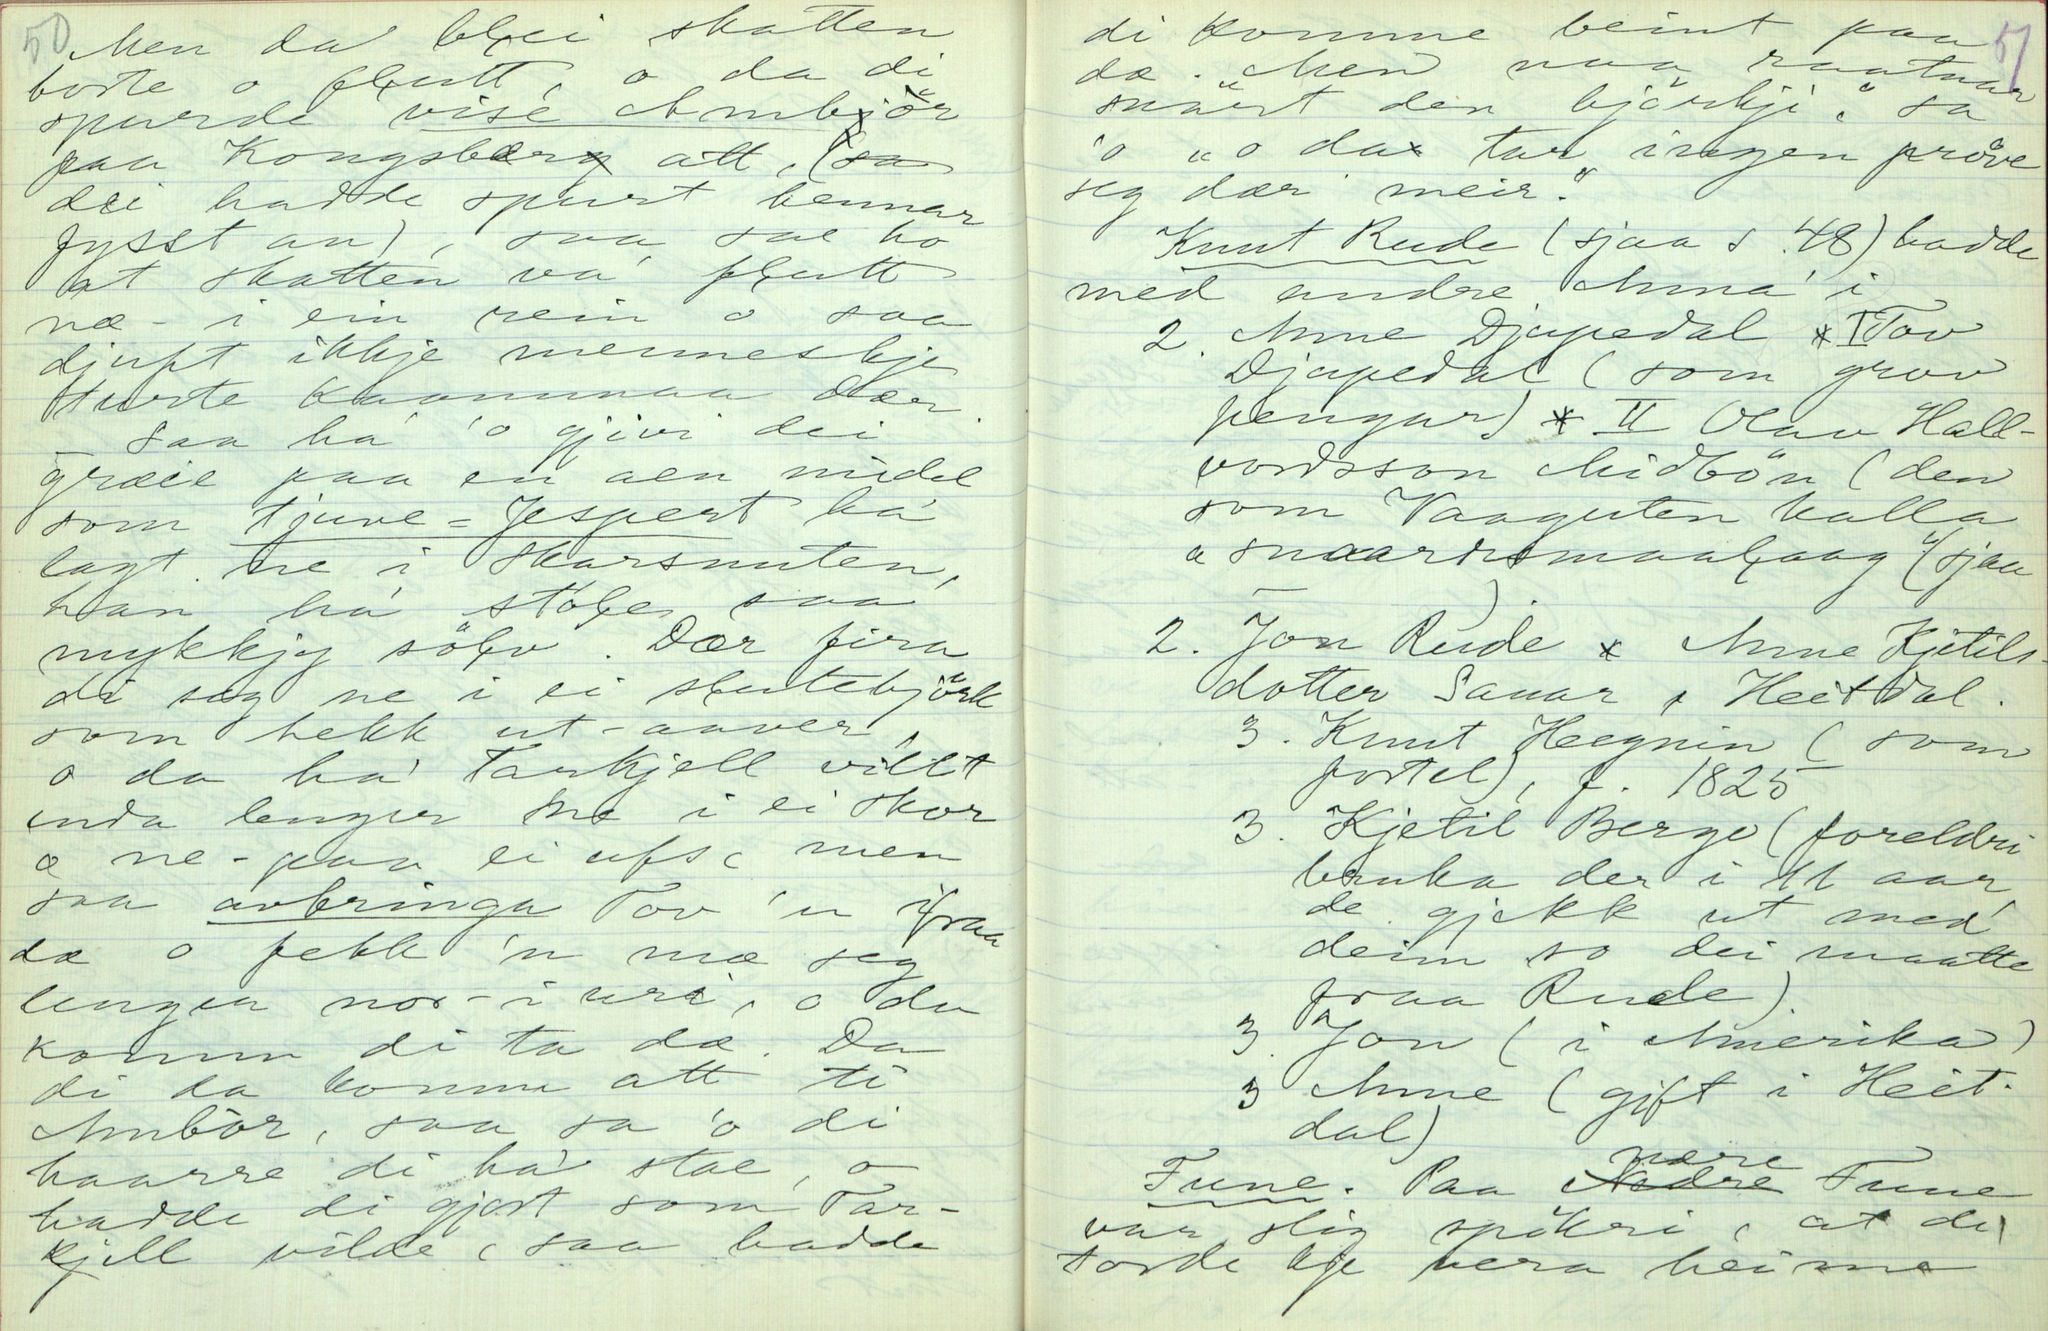 50
Men da blei skatten
borte o flutt, o da di
spurde vise Ambjör
paa Kongsberg att, (sa
dei hadde spurt hennar
fysst an), saa sae ho
at skatten va' flutt
næ- i ein rein o saa
djupt ikkje menneskje
turte kaammaa dær.
Saa ha' 'o gjivi dei
græie paa en aen midel
som tjuve-Jespert ha'
lagt ne i Skarsnuten,
han ha' stole saa
mykkjy sölv. Dær fira
di seg ne i ei slutebjörk
som hekk ut-aaver,
o da ha' Tarkjell villt
enda lenger ne i ei skor
o ne-paa ei ufs, men
saa avbringa Tov 'n ifraa
dæ o fekk 'n mæ seg
lenger nor-i uri, o da
komm di ta dæ. Da
di da komm att ti
Ambör, saa sa 'o di
haarre di ha' stae, o
hadde di gjort som Tar-
kjell vilde, saa hadde
51
di komme beint paa
dæ. Men naa raatnar
snart den björkji," sa
'o "o da tar ingen pröve
seg dær meir."
Knut Rude (sjaa s. 48) hadde
med andre Anna' i
2. Anne Djupedal * I Tov
Djupedal (som grov
pengar) * II Olav Hall-
vordsson Midbön (den
som Vaaguten kalla
"snaardsmaalaag" (sjaa
)
2. Jon Rude * Anne Kjetils-
dotter Sauar, Heitdal.
3. Knut Hegnin (som
fortel), f. 1825
3. Kjetil Berge (foreldri
bruka der i 11 aar,
de gjekk ut med
deim so dei maatte
fraa Rude)
3. Jon (i Amerika)
3 Anne (gift i Heit-
dal)
nære
Fune. Paa Nedre Fune
var slig spökri, at dei
torde kje vera heime